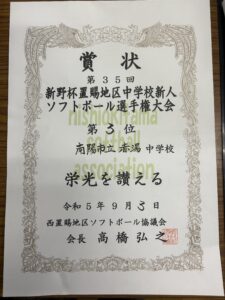 賞状
第35回
新野杯置賜地区中学校新人
ソフトボール選手権大会
第3位
南陽市立赤湯中学校
栄光を讃える
令和5年9月3日
西置賜地区ソフトボール協議会
会長 高橋弘之
nishiokitama
softball
association